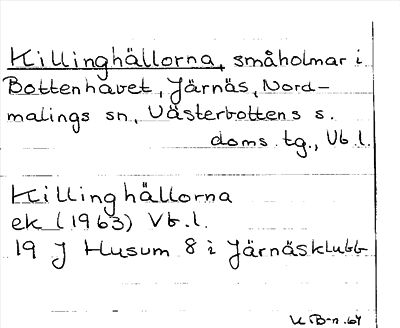 Killinghällorna, småholmar i
Bottenhavet, Järnäs, Nord-
malings sn, Västerbottens s.
doms. tg., Vb. l.
Killinghällorna
ek (1963) Vb. l.
19 J Husum 8 i Järnäsklubb